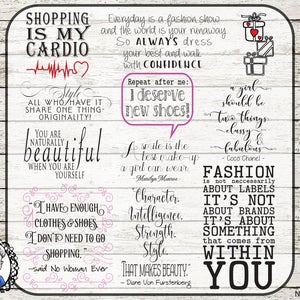 SHOPPING
IS MY
CARDIO
Everyday is a fashion show
and the world is your runaway.
So ALWAYS dress
your best and walk
with CONFIDENCE
Style
ALL WHO HAVE IT
SHARE ONE THING-
ORIGINALITY!
Repeat after me:
I deserve
new shoes!
a girl
should be
two things:
classy
&
fabulous
Coco Chanel
YOU ARE
NATURALLY
beautiful
WHEN YOU ARE
YOURSELF
A smile is the
best make-up
a girl can wear.
Marilyn Monroe
FASHION
is not necessarily
ABOUT LABELS
IT'S NOT
ABOUT BRANDS
IT'S ABOUT
SOMETHING
that comes from
WITHIN
YOU
"I HAVE ENOUGH
CLOTHES & SHOES,
I DON'T NEED TO GO
SHOPPING."
-said No Woman Ever
Character.
Intelligence.
Strength.
Style.
THAT MAKES BEAUTY."
- Diane Von Furstenberg